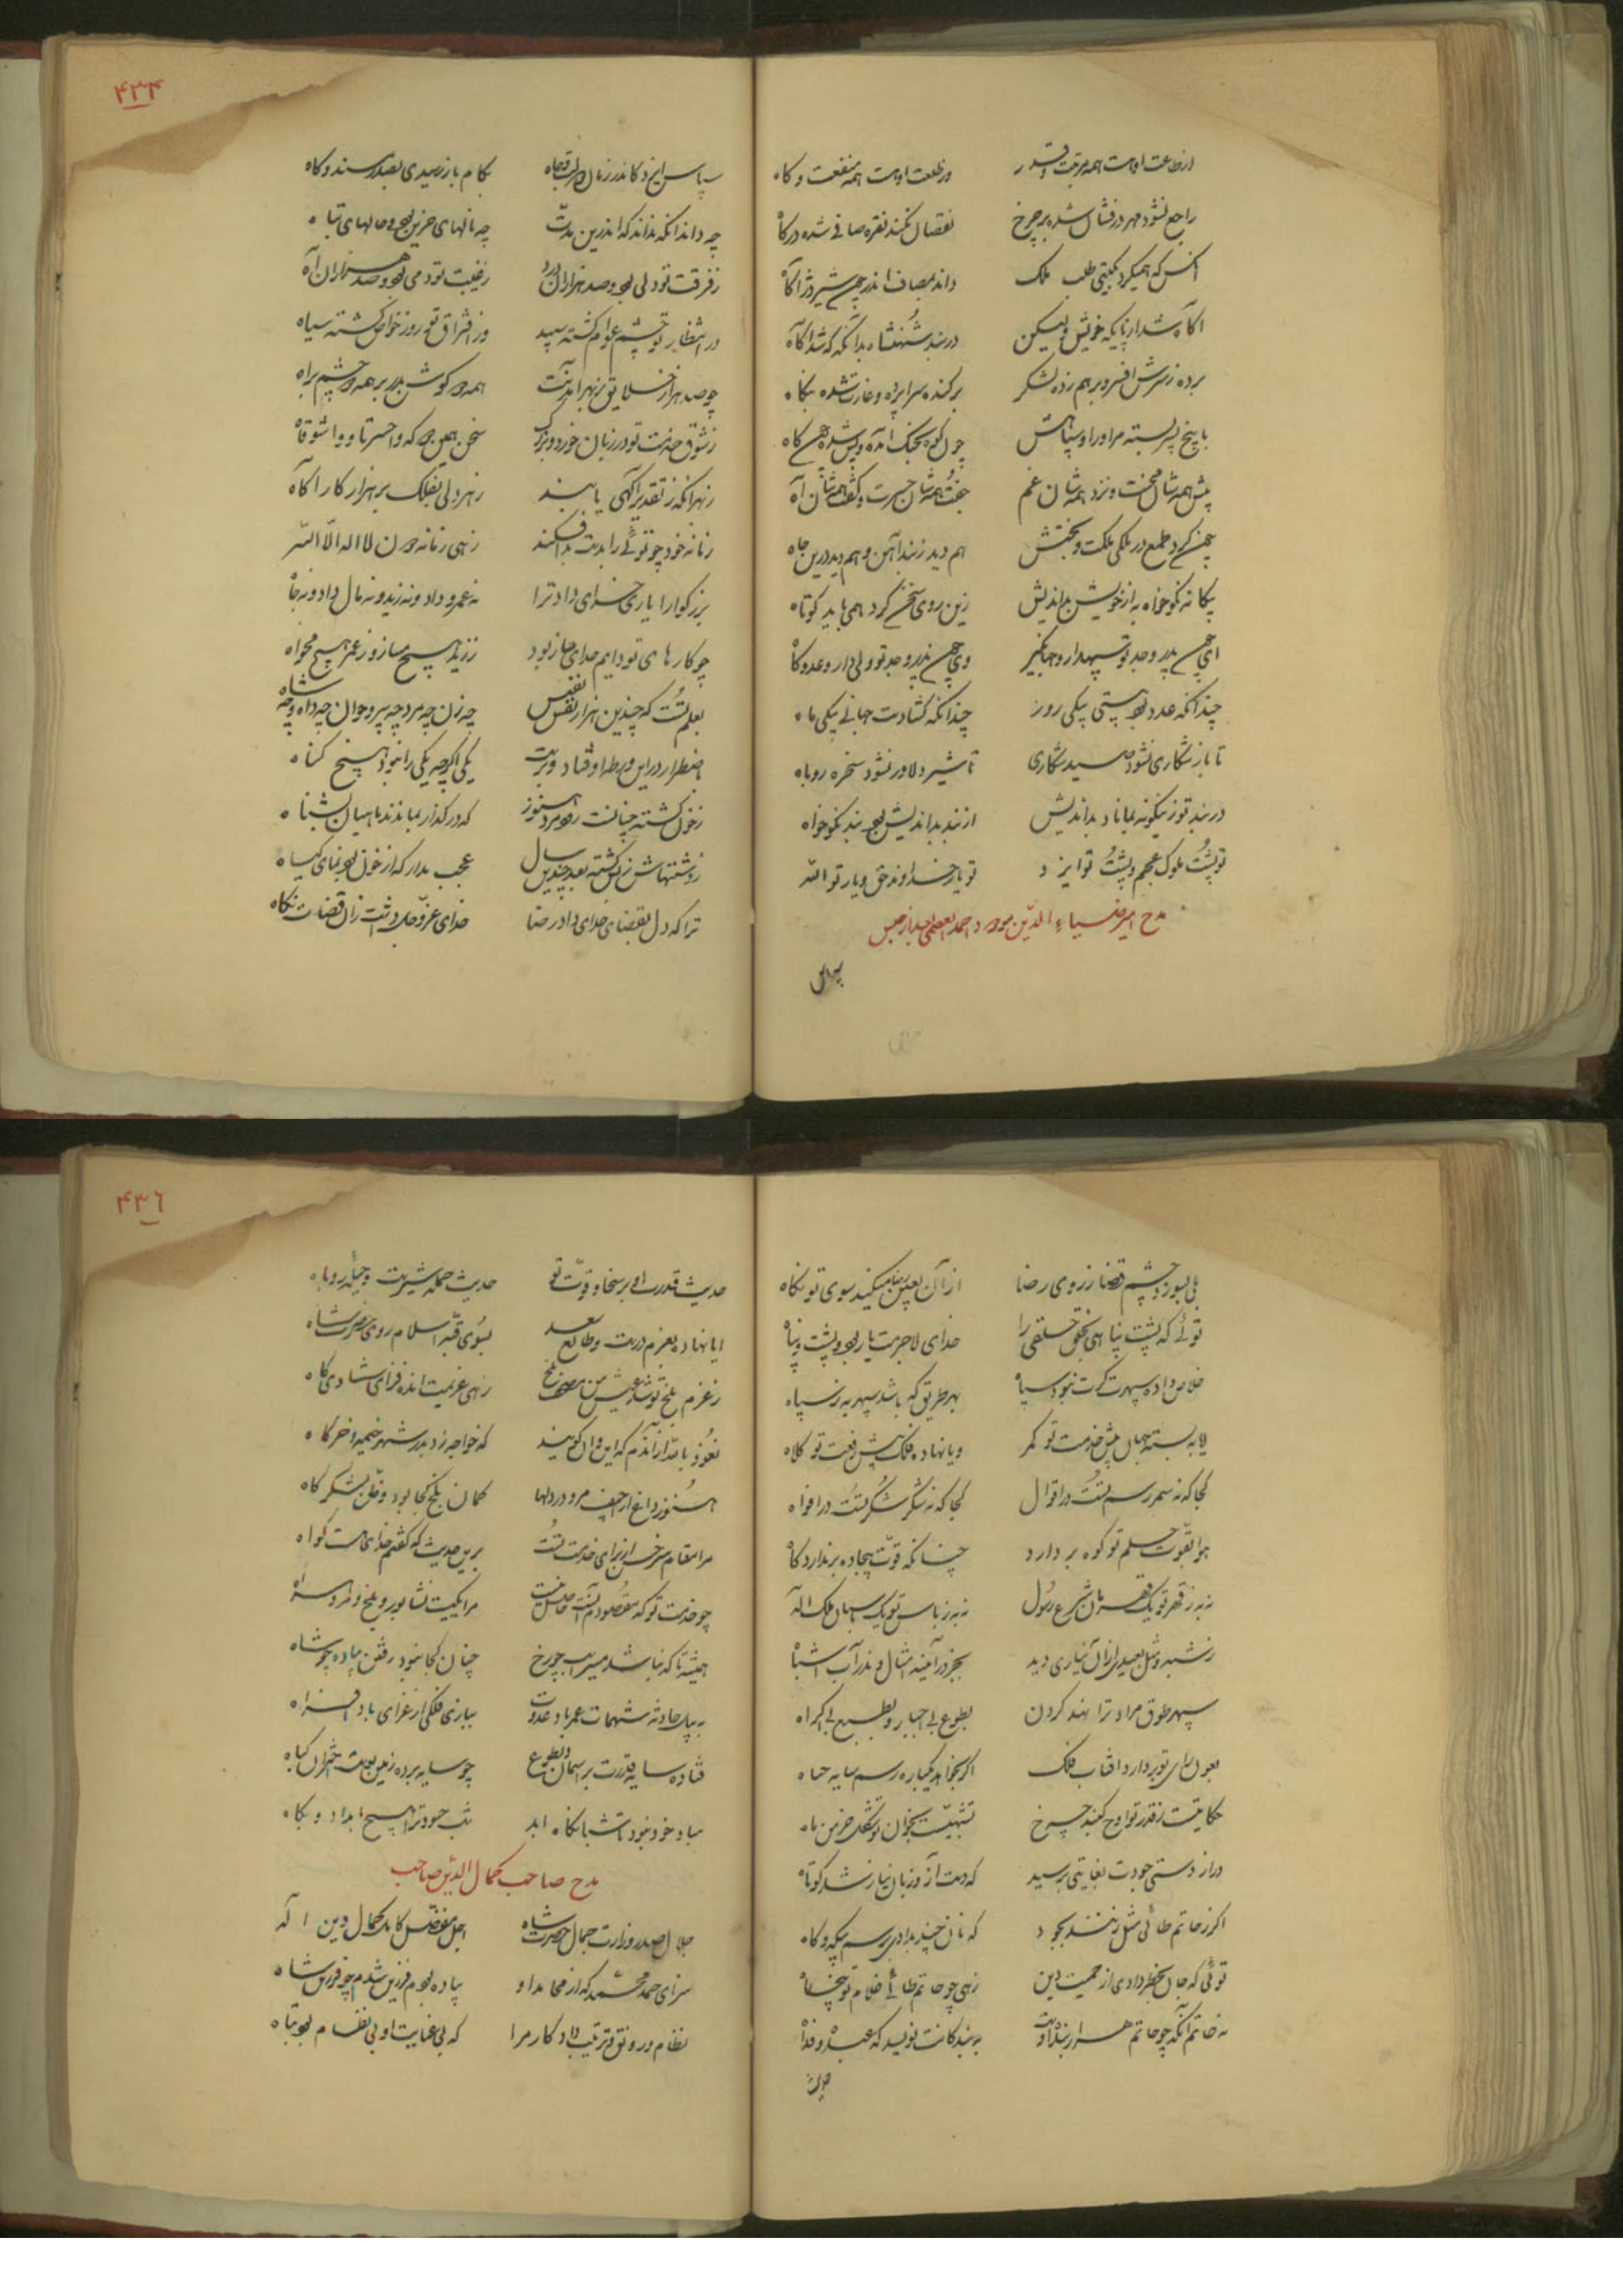 از طاعت اوست همه مرتبت و قدر
در خلعت اوست همه منفعت و کاه
راجع نشود مهر درفشان شده بر چرخ
نقصان نکند نقره صافی شده در کاه
آنکس که همیکرد بگیتی طلب ملک
داند بمصاف اندر چون شیر دژ آگاه
آگاه شد از پایگه خویش ولیکن
در بند شهنشاه بدانگه که شد آگاه
برده ز سرش افسر و بر هم زده لشکر
برکنده سراپرده و غارت شده بنگاه
با پنج پسر بسته مر او را و سپاهش
چون کوه بجنگ آمده و پیش شده چون کاه
پیش همه شان محنت و نزد همه شان غم
جفت همه شان حسرت و گفت همه شان آه
چون کرد طمع در ملکی ملکت و بختش
هم دید ز بند آهن و هم دید درین جاه
بیگانه نکوخواه به از خویش بداندیش
زین روی سخن کرد همی باید کوتاه
ای چون پدر و جد تو سپهدار و جهانگیر
وی چون پدر و جد تو ولی دار و عدو کاه
چندانکه عدو بود ببستی بیکی روز
چندانکه گشادست جهانی بیکی ماه
تا باز شکاری نشود صید شکاری
تا شیر دلاور نشود سخره روباه
در بند تو زینگونه بماناد بداندیش
از بند بداندیش بود بند نکوخواه
تو پشت ملوک عجم و پشت تو ایزد
تو یار خداوند حق و یار تو الله
مدح امیر ضیاء الدین مودود احمد العصمی
سپاس
۴۳۴
سپاس ایزد کاندر زمان دولت و جاه
بکام باز رسیدی بصدر مسند و گاه
چه داند آنکه نداند که اندرین مدت
چه نالهای حزین بود و حالهای تباه
ز فرقت تو دلی بود و صد هزاران درد
ز غیبت تو دمی بود و صد هزاران آه
در انتظار تو چشم عوام گشته سپید
وز افتراق تو روز خواص گشته سیاه
چو صد هزار خلایق ز بهر آمدنت
همه چو گوش بدر بر همه چو چشم براه
ز شوق خدمت تو در زبان خورد و بزرگ
سخن همین بود که واحسرتا و واشوقاه
ز هر آنکه ز تقدیر آگهی یابند
ز هر دلی بفلک بر هزار کارآگاه
زمانه خود چو توئی را بدیت بد افکند
زهی زمانه دون لا اله الا الله
بزرگوارا یاری خدای داد ترا
نه عمرو داد و نه زید و نه مال داد و نه جاه
چو کارهای تو دایم خدای ساز بود
ز زید هیچ مساز و ز عمر هیچ مخواه
بعلم تست که چندین هزار نفس نفیس
چه زن چه مرد چه پیر و جوان چه داه و چه شاه
باضطرار در این ورطه اوفتاد و برست
یکی اگرچه یکی را نبود هیچ گناه
ز خون کشته چنانست رود مرو هنوز
که در گذار بماندند ماهیان ز شناه
ز کشتهاش ز بس کشته بعد چندین سال
عجب مدار که از خون بود نمای گیاه
ترا که دل بقضای خدای داد رضا
خدای عز و جل داشت زان قضات نگاه
بلی بسوزد چشم قضا ز روی رضا
از آن بعین رضا میکند سوی تو نگاه
توئی که پشت پناهی بحق خلقی را
خدای لاجرمت یار بود و پشت و پناه
خلاص داده سپهرت گرت نبود سپاه
بهر طریق که باشد سپهر به ز سپاه
ایا ببسته جهان پیش خدمت تو کمر
و یا نهاده فلک پیش رفعت تو کلاه
کجا که نه سمر رسم تست در اقوال
کجا که نه شکر شکر تست در افواه
هوا بقوت حلم تو کوه بر دارد
چنانکه قوت بیجاده بر ندارد کاه
نه به ز قهر تو یک قهرمان شرع رسول
نه به ز پاس تو یک پاسبان ملک اله
ز شبه و مثل بعیدی از آن نیاری دید
بجز در آینه امثال و اندر آب اشباه
سپهر طوق مراد ترا نهد گردن
بطوع بی اجبار و بطبع بی اکراه
بعون رای تو بردارد آفتاب فلک
اگر بخواهد یکباره رسم سایه ز چاه
حکایتیست ز قدر تو اوج گنبد چرخ
تشبهیست بخوان تو شکل خرمن ماه
دراز دستی جودت بغایتی برسید
که دست آز و زبان نیاز شد کوتاه
اگر ز حاتم طائی مثل زنند بجود
که نان خویش بدادی برسم بیگه و گاه
توئی که جان بخطر دادی از حمیت دین
زهی چو حاتم طائی غلام تو پنجاه
نه حاتم آنکه چو حاتم هزار بنده اوست
به بندگانت نویسد که عبده و فداه
حدیث
۴۳۶
حدیث قدرت ابر سخا و قوت تو
حدیث حمله شیرست و حیله روباه
ایا نهاده بعزم درست و طالع سعد
بسوی قبه اسلام روی حضرت شاه
ز عزم بلخ تو شد عیش من رهی تلخ
زهی عزیمت انده فزای شادی کاه
نعوذ بالله از آن دم که این و آن گویند
که خواجه زد بدر شهر خیمه و خرگاه
هنوز داغ از حنیف مرو در دلها
گمان بلخ کجا بود و ظن لشکرگاه
مرا مقام سرخس از برای خدمت تست
برین حدیث که گفتم خدای هست گواه
چو خدمت تو که مقصودم آنست حاصل نیست
مرا یکیست نشابور و بلخ و مرو و هراه
همیشه تا که نباشد مسیر اسب چو رخ
چنان کجا نبود رفتن پیاده چو شاه
به پیل حادثه شهمات عمر باد عدوت
ببازی فلکی از غرای باد افراه
فتاده سایه قدرت بر آسمان و بطوع
چو سایه برده زمین بوست اختران بجباه
مباد خود نبود تا شبانگاه ابد
شب حسود ترا هیچ بامداد و پگاه
مدح صاحب کمال الدین صاحب
جلال صدر وزارت جمال حضرت شاه
اجل مفضل کامل کمال دین اله
سزای حمد محمد که از محامد او
پیاده بودم فرزین شدم چو فرزین شاه
نظام و رونق و ترتیب داد کار مرا
که بی عنایت او بی نظام بود و تباه